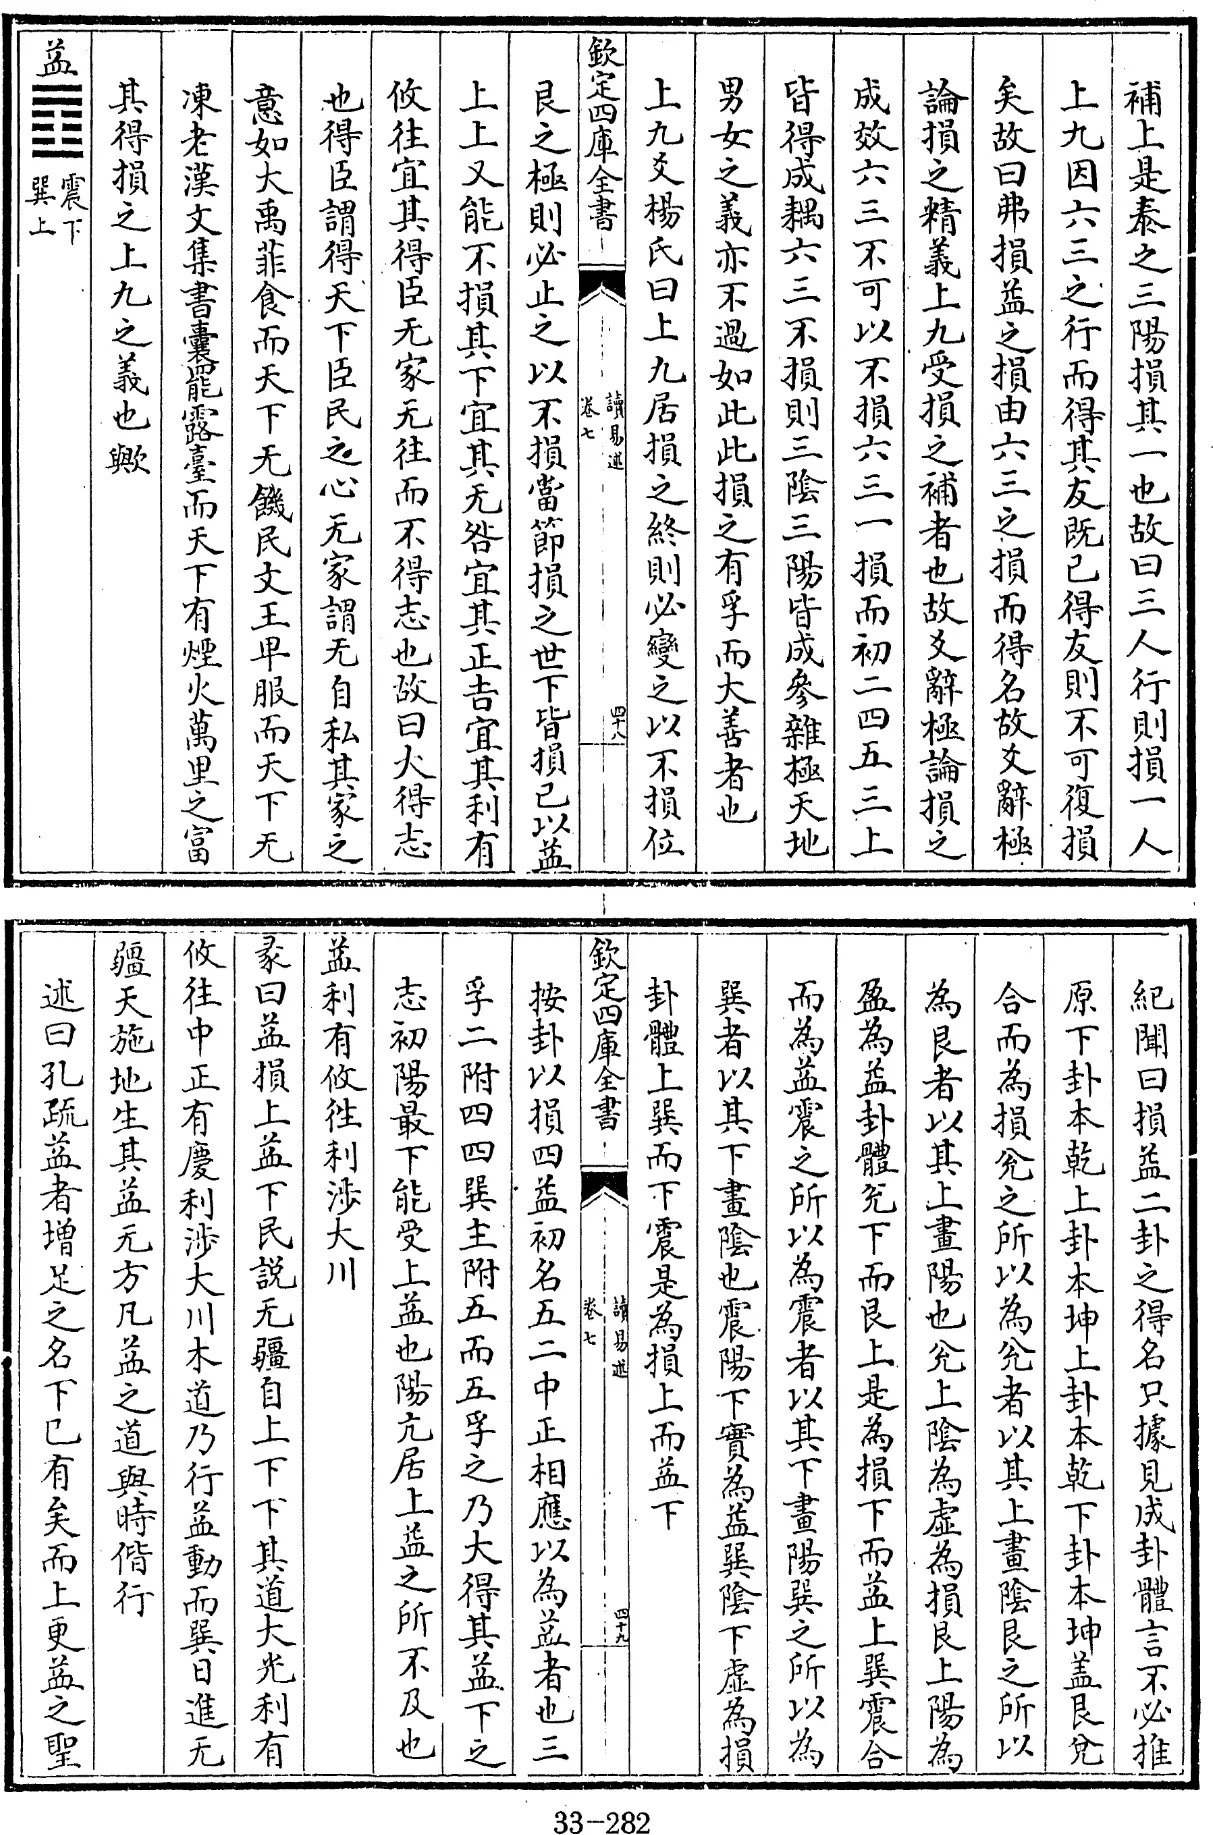 補上是泰之三陽損其一也故曰三人行則損一人
上九因六三之行而得其友既已得友則不可復損
矣故曰弗損益之損由六三之損而得名故爻辭極
論損之精義上九受損之補者也故爻辭極論損之
成效六三不可以不損六三一損而初二四五三上
皆得成耦六三不損則三陰三陽皆成參雜極天地
男女之義亦不過如此此損之有孚而大善者也
上九爻楊氏曰上九居損之終則必變之以不損位
欽定四庫全書
讀易述
卷七
四十八
艮之極則必止之以不損當節損之世下皆損已以益
上上又能不損其下宜其无咎宜其正吉宜其利有
攸往宜其得臣无家无往而不得志也故曰大得志
也得臣謂得天下臣民之心无家謂无自私其家之
意如大禹菲食而天下无饑民文王卑服而天下无
凍老漢文集書囊罷露臺而天下有煙火萬里之富
其得損之上九之義也歟
益䷩震下巽上
紀聞曰損益二卦之得名只據見成卦體言不必推
原下卦本乾上卦本坤上卦本乾下卦本坤盖艮兊
合而為損兊之所以為兊者以其上畫陰艮之所以
為艮者以其上畫陽也兊上陰為虛為損艮上陽為
盈為益卦體兊下而艮上是為損下而益上巽震合
而為益震之所以為震者以其下畫陽巽之所以為
巽者以其下畫陰也震陽下實為益巽陰下虛為損
卦體上巽而下震是為損上而益下
欽定四庫全書
讀易述
卷七
四十九
按卦以損四益初名五二中正相應以為益者也三
孚二附四四巽主附五而五孚之乃大得其益下之
志初陽最下能受上益也陽亢居上益之所不及也
益利有攸往利涉大川
彖曰益損上益下民説无疆自上下下其道大光利有
攸往中正有慶利涉大川木道乃行益動而巽日進无
疆天施地生其益无方凡益之道與時偕行
述曰孔疏益者增足之名下已有矣而上更益之聖
33-282